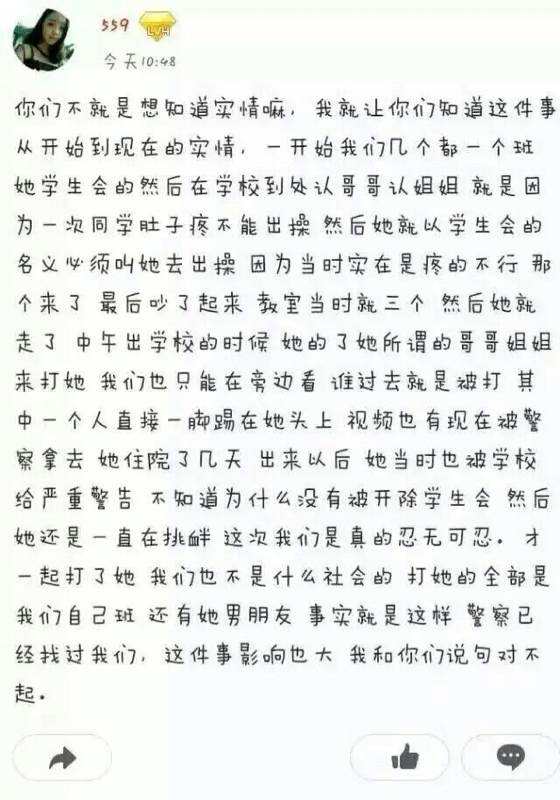 559
LVH
今天10:48
你们不就是想知道实情嘛，我就让你们知道这件事
从开始到现在的实情，一开始我们几个都一个班
她学生会的然后在学校到处认哥哥认姐姐 就是因
为一次同学肚子疼不能出操 然后她就以学生会的
名义必须叫她去出操 因为当时实在是疼的不行 那
个来了 最后吵了起来 教室当时就三个 然后她就
走了 中午出学校的时候 她的了她所谓的哥哥姐姐
来打她 我们也只能在旁边看 谁过去就是被打 其
中一个人直接一脚踢在她头上 视频也有现在被警
察拿去 她住院了几天 出来以后 她当时也被学校
给严重警告 不知道为什么没有被开除学生会 然后
她还是一直在挑衅 这次我们是真的忍无可忍。才
一起打了她 我们也不是什么社会的 打她的全部是
我们自己班 还有她男朋友 事实就是这样 警察已
经找过我们，这件事影响也大 我和你们说句对不
起。